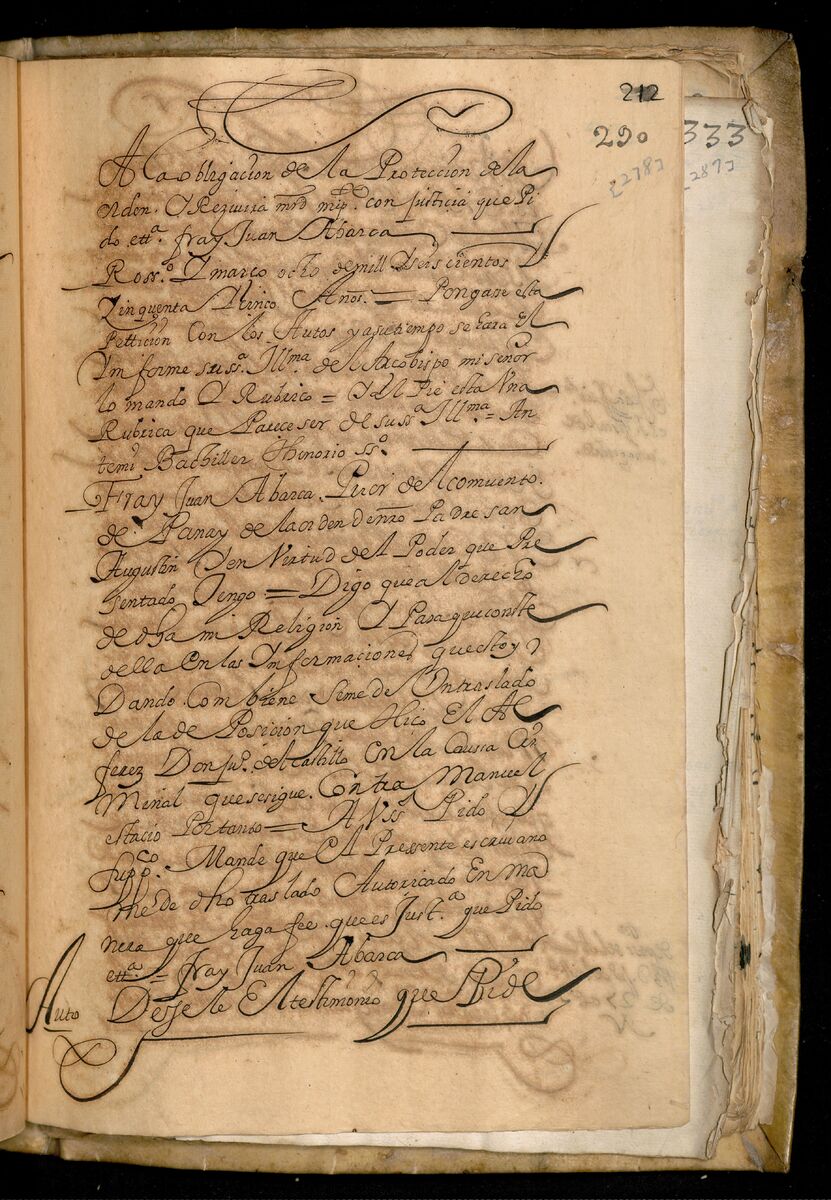 212
290
333
[278]
[287]
A la obligacion de la Proteccion de la
orden. Y Reziuira mrd mi pe. con justicia que Pi
do etta. fray Juan Abarca
Ross.o Y marco ocho de mill Y seis cientos Y
Zinquenta Y Cinco Años. = Pongase esta
Pettizion Con los Autos y a su tiempo se hara El
Ynforme su ssa. Illma. del Arcobispo mi señor
lo mando Y Rubrico = Y al Pie esta Vna
Rubrica que Parece ser de su ssa Illma = An
temi Bachiller Thinorio sso.
Fray Juan Abarca. Prior del Comuento.
de Panay de la orden de nro Padre san
Augustin Y en Virtud del Poder que Pre
sentado Tengo = Digo que al derecho
de dha mi Religion Y Para que conste
della En las Ynformaciones que estoy
Dando. Combiene seme de Un traslado
de la de Posicion que Hico El Al
ferez Don Ju.o del Castillo En la Caussa Cri
minal que se sigue. Contra Manuel
estacio Por tanto = A Vss.a Pido Y
supp.co Mande que El Pressente escriuano
me de dho traslado Autoricado En ma
nera que haga fee. que es Just.a que Pido
etta. = Fray Juan Abarca
Auto Desse le El testimonio que Pide